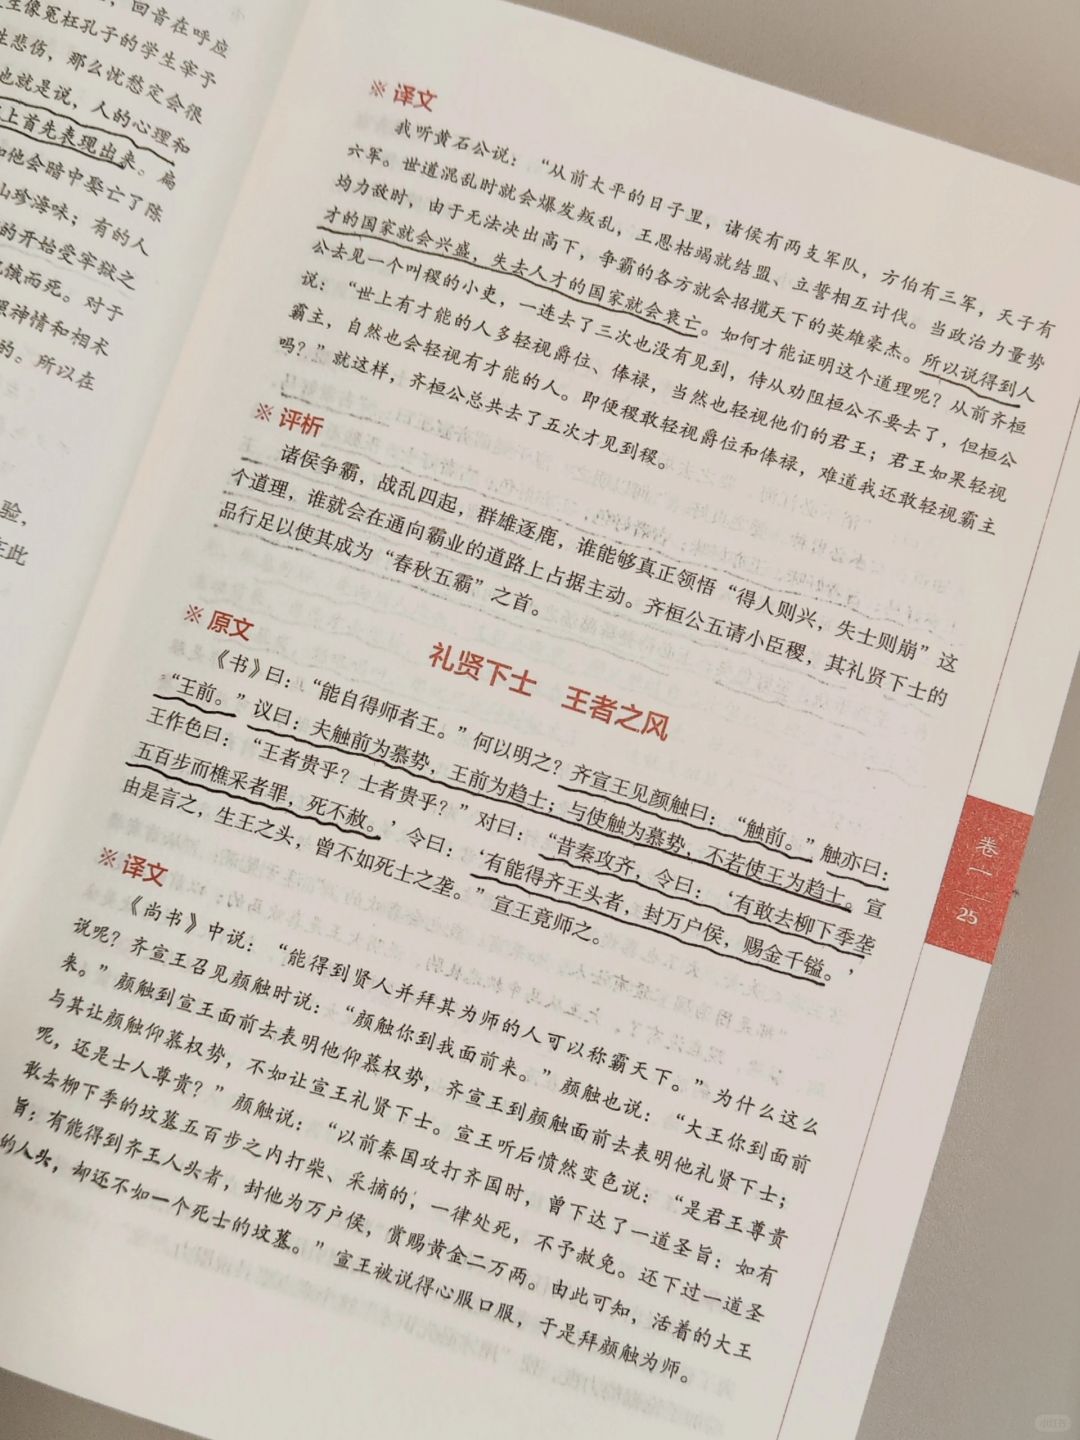 ，回音在呼应
生像冤枉孔子的学生宰予
性悲伤，那么忧愁定会很
也就是说，人的心理和
上首先表现出来。扁
和他会暗中娶亡了陈
山珍海味；有的人
的开始受牢狱之
饥饿而死。对于
照神情和相术
的。所以在
验，
在此
※ 译文
我听黄石公说：“从前太平的日子里，诸侯有两支军队，方伯有三军，天子有
六军。世道混乱时就会爆发叛乱，王恩枯竭就结盟、立誓相互讨伐。当政治力量势
均力敌时，由于无法决出高下，争霸的各方就会招揽天下的英雄豪杰。所以说得到人
才的国家就会兴盛，失去人才的国家就会衰亡。如何才能证明这个道理呢？从前齐桓
公去见一个叫稷的小吏，一连去了三次也没有见到，侍从劝阻桓公不要去了，但桓公
说：“世上有才能的人多轻视爵位、俸禄，当然也轻视他们的君王；君王如果轻视
霸主，自然也会轻视有才能的人。即便稷敢轻视爵位和俸禄，难道我还敢轻视霸主
吗？”就这样，齐桓公总共去了五次才见到稷。
※ 评析
诸侯争霸，战乱四起，群雄逐鹿，谁能够真正领悟“得人则兴，失士则崩”这
个道理，谁就会在通向霸业的道路上占据主动。齐桓公五请小臣稷，其礼贤下士的
品行足以使其成为“春秋五霸”之首。
礼贤下士 王者之风
※ 原文
《书》曰：“能自得师者王。”何以明之？齐宣王见颜触曰：“触前。”触亦曰：
“王前。”议曰：夫触前为慕势，王前为趋士；与使触为慕势，不若使王为趋士。宣
王作色曰：“王者贵乎？士者贵乎？”对曰：“昔秦攻齐，令曰：‘有敢去柳下季垄
五百步而樵采者罪，死不赦。’令曰：‘有能得齐王头者，封万户侯，赐金千镒。’
由是言之，生王之头，曾不如死士之垄。”宣王竟师之。
※ 译文
《尚书》中说：“能得到贤人并拜其为师的人可以称霸天下。”为什么这么
说呢？齐宣王召见颜触时说：“颜触你到我面前来。”颜触也说：“大王你到面前
来。”颜触到宣王面前去表明他仰慕权势，齐宣王到颜触面前去表明他礼贤下士；
与其让颜触仰慕权势，不如让宣王礼贤下士。宣王听后愤然变色说：“是君王尊贵
呢，还是士人尊贵？”颜触说：“以前秦国攻打齐国时，曾下达了一道圣旨：如有
敢去柳下季的坟墓五百步之内打柴、采摘的，一律处死，不予赦免。还下过一道圣
旨：有能得到齐王人头者，封他为万户侯，赏赐黄金二万两。由此可知，活着的大王
的人头，却还不如一个死士的坟墓。”宣王被说得心服口服，于是拜颜触为师。
卷一
25